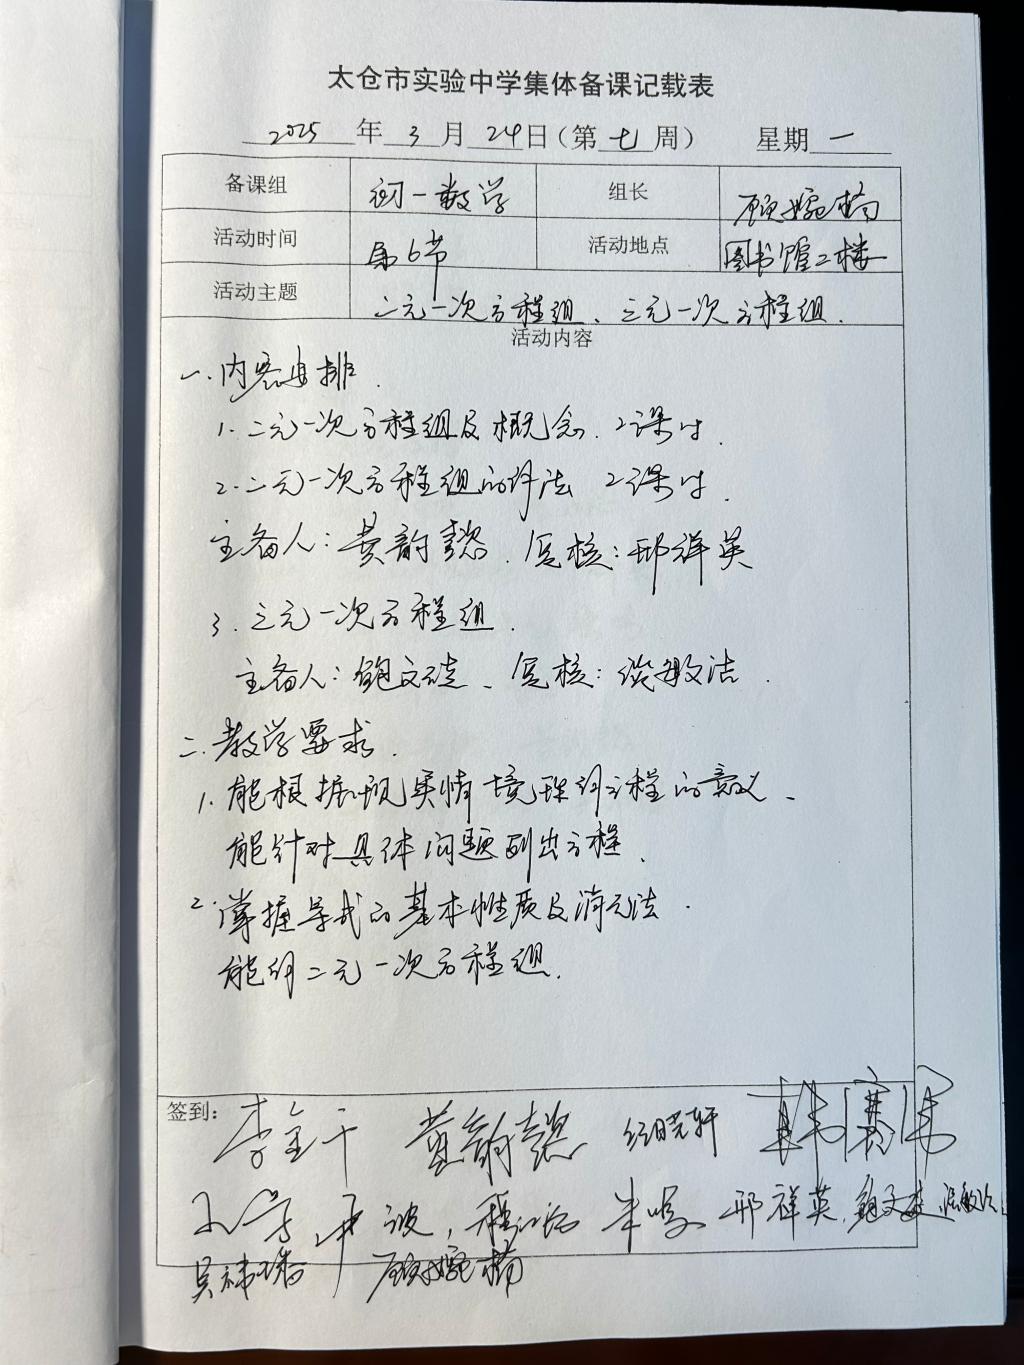 太仓市实验中学集体备课记载表
2025 年 3 月 24日(第 七 周) 星期 一
备课组 初一数学 组长 顾婉楠
活动时间 第6节 活动地点 图书馆二楼
活动主题 二元一次方程组、三元一次方程组.
活动内容
一.内容安排.
1.二元一次方程组及概念.2课时.
2.二元一次方程组的解法 2课时.
主备人:黄韵懿.复核:邢祥英
3.三元一次方程组.
主备人:鲍文 、复核:谈敏洁.
二.教学要求.
1.能根据现实情境理解方程的意义、
能针对具体问题列出方程、
2.掌握等式的基本性质及消元法.
能解二元一次方程组.
签到: 李金干 黄韵懿 晓轩 韩 伟
邢祥英,鲍文 谈敏洁
吴 顾婉楠